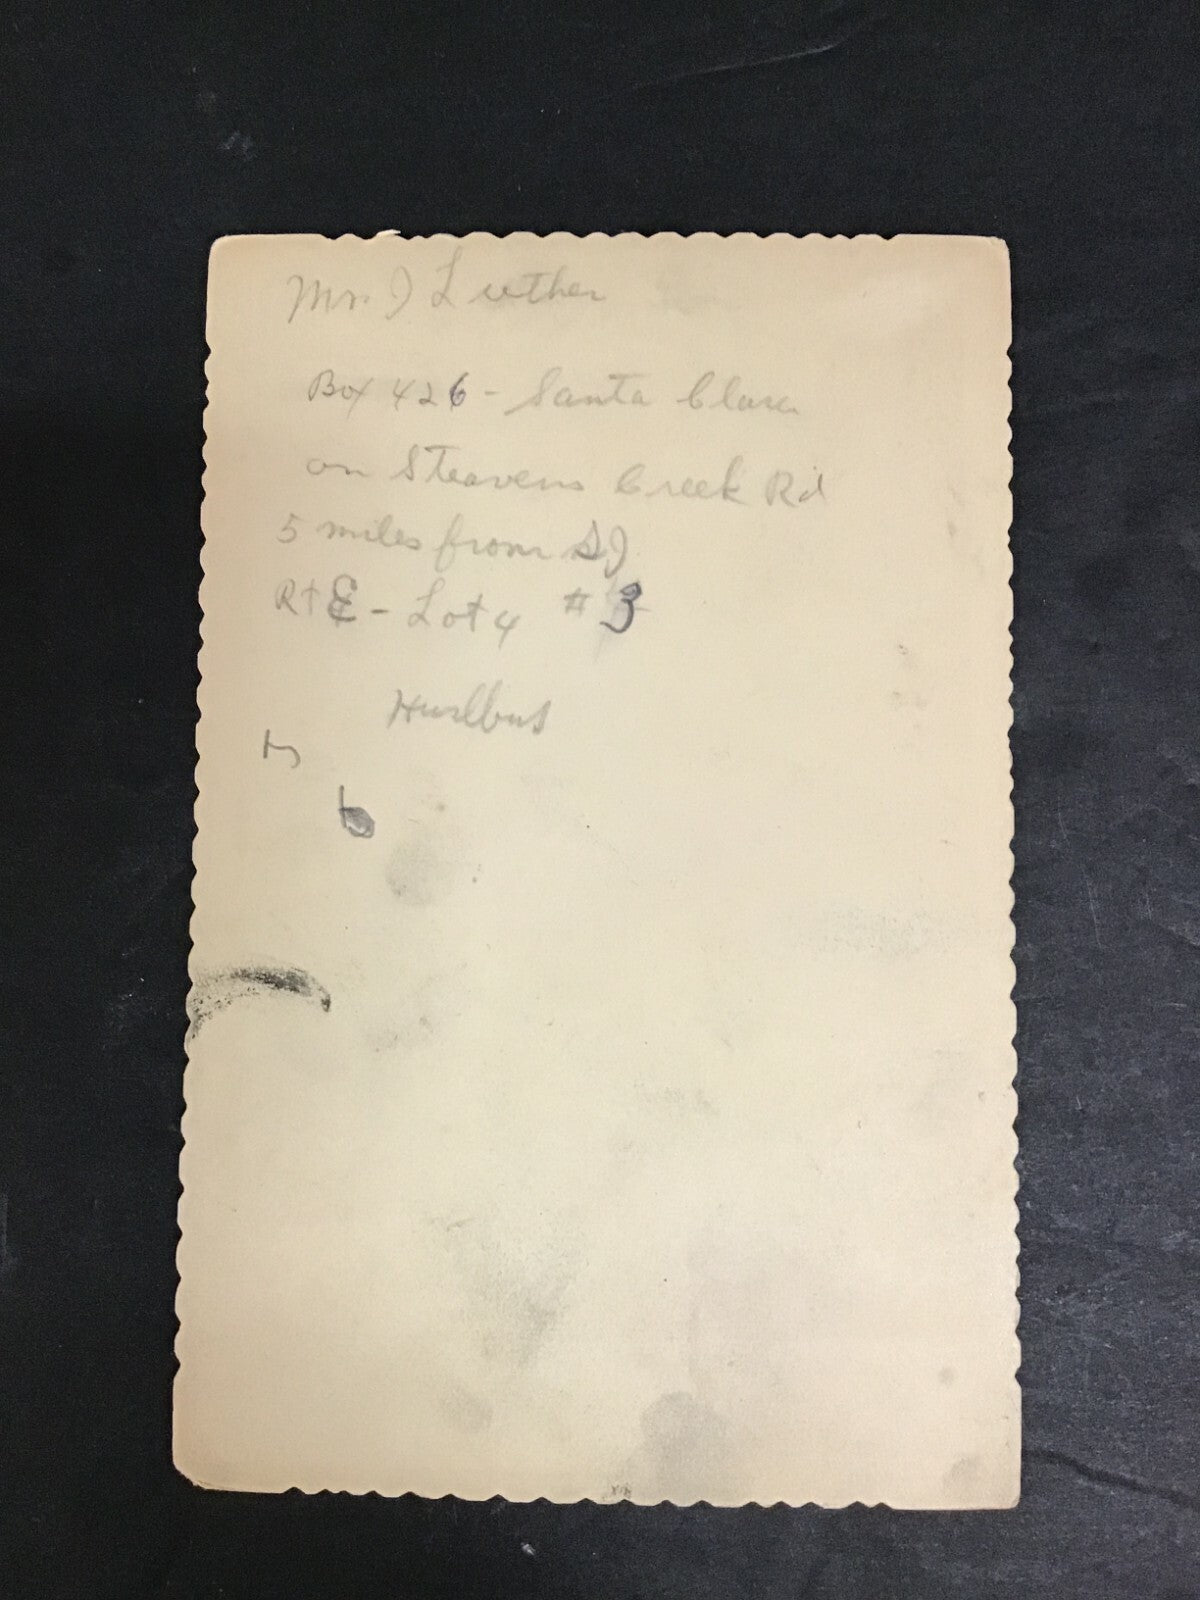 Mr. J Luther
Box 426 - Santa Clara
on Steavens Creek Rd
5 miles from SJ
Rt E - Lot 4 # 3
Hurlbut
b